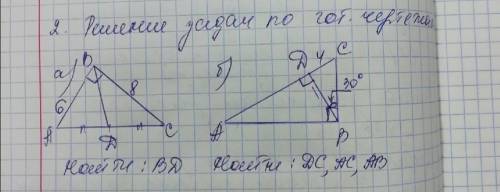 2. Решение задач по гот. чертежам
а) B
б) D 4 C
6 8
30°
A D C
A B
Найти: BD Найти: DC, AC, AB